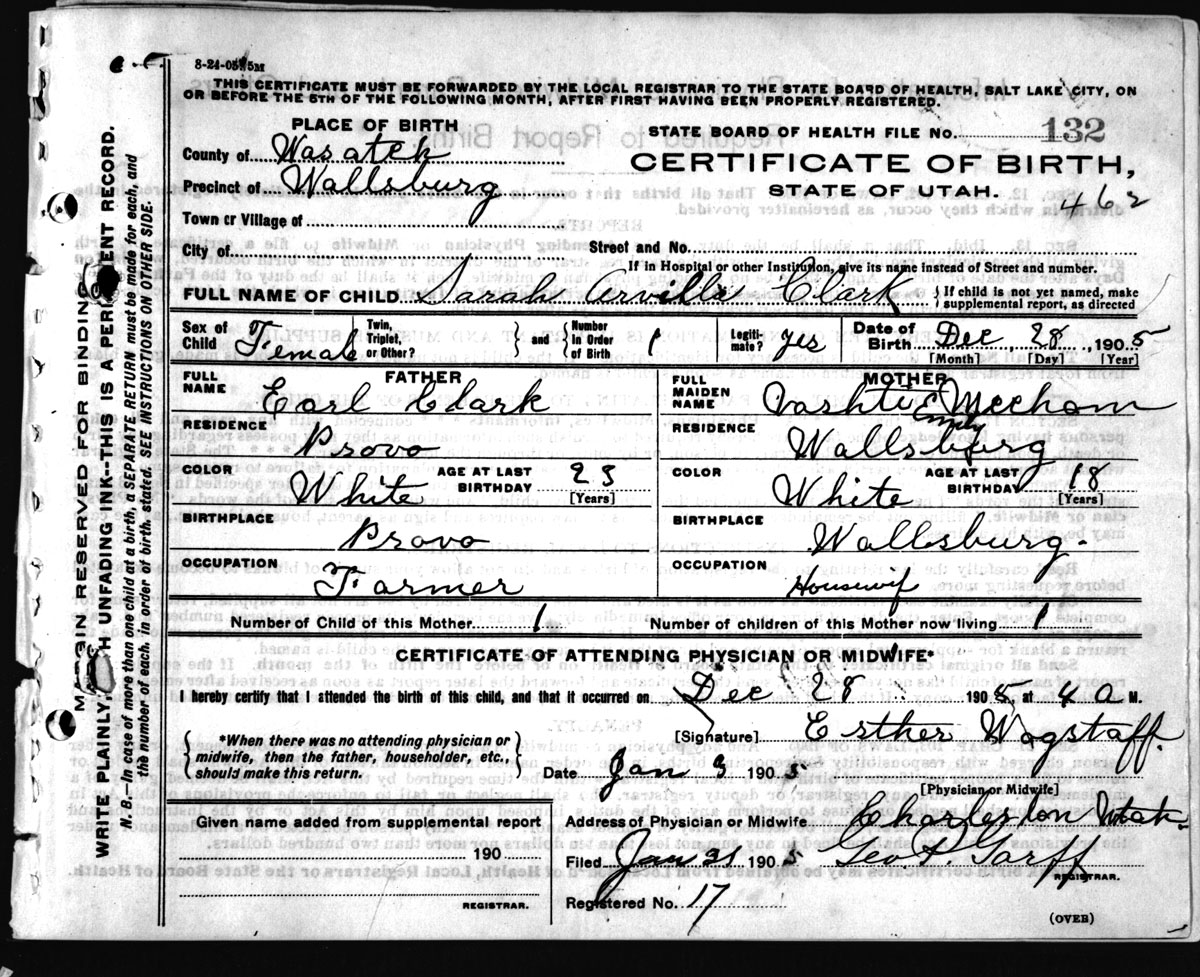 8-24-05 5M
THIS CERTIFICATE MUST BE FORWARDED BY THE LOCAL REGISTRAR TO THE STATE BOARD OF HEALTH, SALT LAKE CITY, ON
OR BEFORE THE 5TH OF THE FOLLOWING MONTH, AFTER FIRST HAVING BEEN PROPERLY REGISTERED.
PLACE OF BIRTH
STATE BOARD OF HEALTH FILE No. 132
County of Wasatch
CERTIFICATE OF BIRTH,
Precinct of Wallsburg
STATE OF UTAH.
462
Town or Village of
City of Street and No.
If in Hospital or other Institution, give its name instead of Street and number.
FULL NAME OF CHILD Sarah Arvilla Clark { If child is not yet named, make supplemental report, as directed
Sex of Child Female Twin, Triplet, or Other? } and { Number in Order of Birth 1 Legitimate? yes Date of Birth Dec 28, 1905
[Month] [Day] [Year]
FATHER MOTHER
FULL NAME Earl Clark FULL MAIDEN NAME Vashti Emily Meecham
RESIDENCE Provo RESIDENCE Wallsburg
COLOR White AGE AT LAST BIRTHDAY 23 [Years] COLOR White AGE AT LAST BIRTHDAY 18 [Years]
BIRTHPLACE Provo BIRTHPLACE Wallsburg.
OCCUPATION Farmer OCCUPATION Housewif
Number of Child of this Mother 1 Number of children of this Mother now living 1
CERTIFICATE OF ATTENDING PHYSICIAN OR MIDWIFE*
I hereby certify that I attended the birth of this child, and that it occurred on Dec 28 1905, at 4 a M.
[Signature] Esther Wagstaff.
{ *When there was no attending physician or midwife, then the father, householder, etc., should make this return. }
Date Jan 3 1905.
[Physician or Midwife]
Given name added from supplemental report
Address of Physician or Midwife Charleston Utah.
190
Filed Jan 21 1905 Geo P. Garff
REGISTRAR.
Registered No. 17
REGISTRAR.
(OVER)
MARGIN RESERVED FOR BINDING
WRITE PLAINLY, WITH UNFADING INK--THIS IS A PERMANENT RECORD.
N. B. In case of more than one child at a birth, a SEPARATE RETURN must be made for each, and
the number of each, in order of birth, stated. SEE INSTRUCTIONS ON OTHER SIDE.